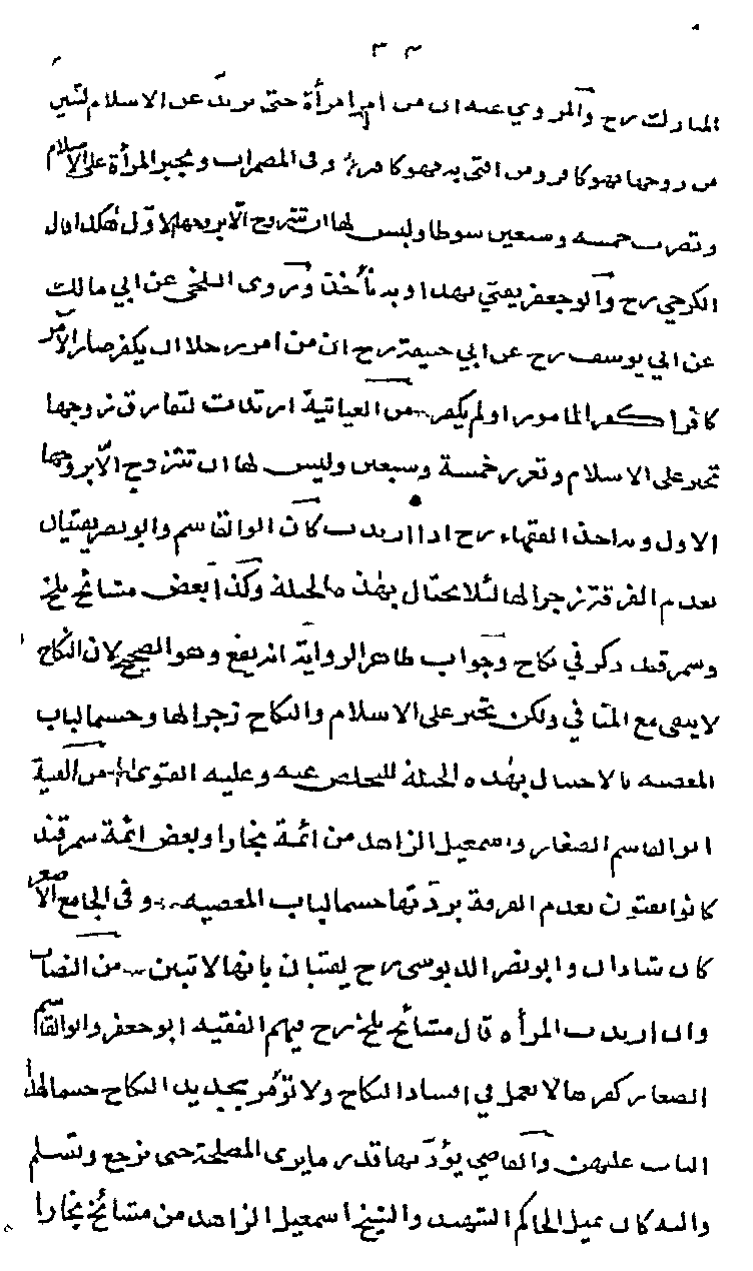 ٣٣
المبارك رح والمروي عنه ان من امر امرأة حتى ترتد عن الاسلام لتبين
من زوجها فهو كافر ومن افتى به فهو كافر وفي المضمرات وتجبر المرأة على الاسلام
وتضرب خمسة وسبعين سوطا وليس لها ان تتزوج الا بزوجها الاول هكذا قال
الكرخي رح وابو جعفر يفتي بهذا وبه نأخذ وروى البلخي عن ابي مالك
عن ابي يوسف رح عن ابي حنيفة رح ان من امر رجلا ان يكفر صار الآمر
كافرا كفر المامور او لم يكفر من الغياثية ارتدت لتفارق زوجها
تجبر على الاسلام وتعزر خمسة وسبعين وليس لها ان تتزوج الّا بزوجها
الاول وبه اخذ الفقهاء رح اذا ارتدت كان ابو القاسم وابو نصر يفتيان
بعدم الفرقة زجرا لها لئلا يحتال بهذه الحيلة وكذا بعض مشائخ بلخ
وسمرقند ذكر في نكاح وجواب ظاهر الرواية انه يقع وهو الصحيح لان النكاح
لا يبقى مع المنافي ولكن تجبر على الاسلام والنكاح زجرا لها وحسما لباب
المعصية بالاحتيال بهذه الحيلة للتخلص عنه وعليه الفتوى من القنية
ابو القاسم الصفار واسمعيل الزاهد من ائمة بخارا وبعض ائمة سمرقند
كانوا يفتون بعدم الفرقة بردّتها حسما لباب المعصية وفى الجامع الاصغر
كان شاذان وابو نصر الدبوسى رح يفتيان بانها لا تبين من النصاب
وان ارتدت المرأة قال مشائخ بلخ رح فيهم الفقيه ابو جعفر وابو القاسم
الصفار كفرها لا يعمل في افساد النكاح ولا تؤمر بتجديد النكاح حسما لهذا
الباب عليهن والقاضي يؤدّبها قدر ما يرى المصلحة حتى ترجع وتسلم
واليه كان يميل الحاكم الشهيد والشيخ اسمعيل الزاهد من مشائخ بخارا